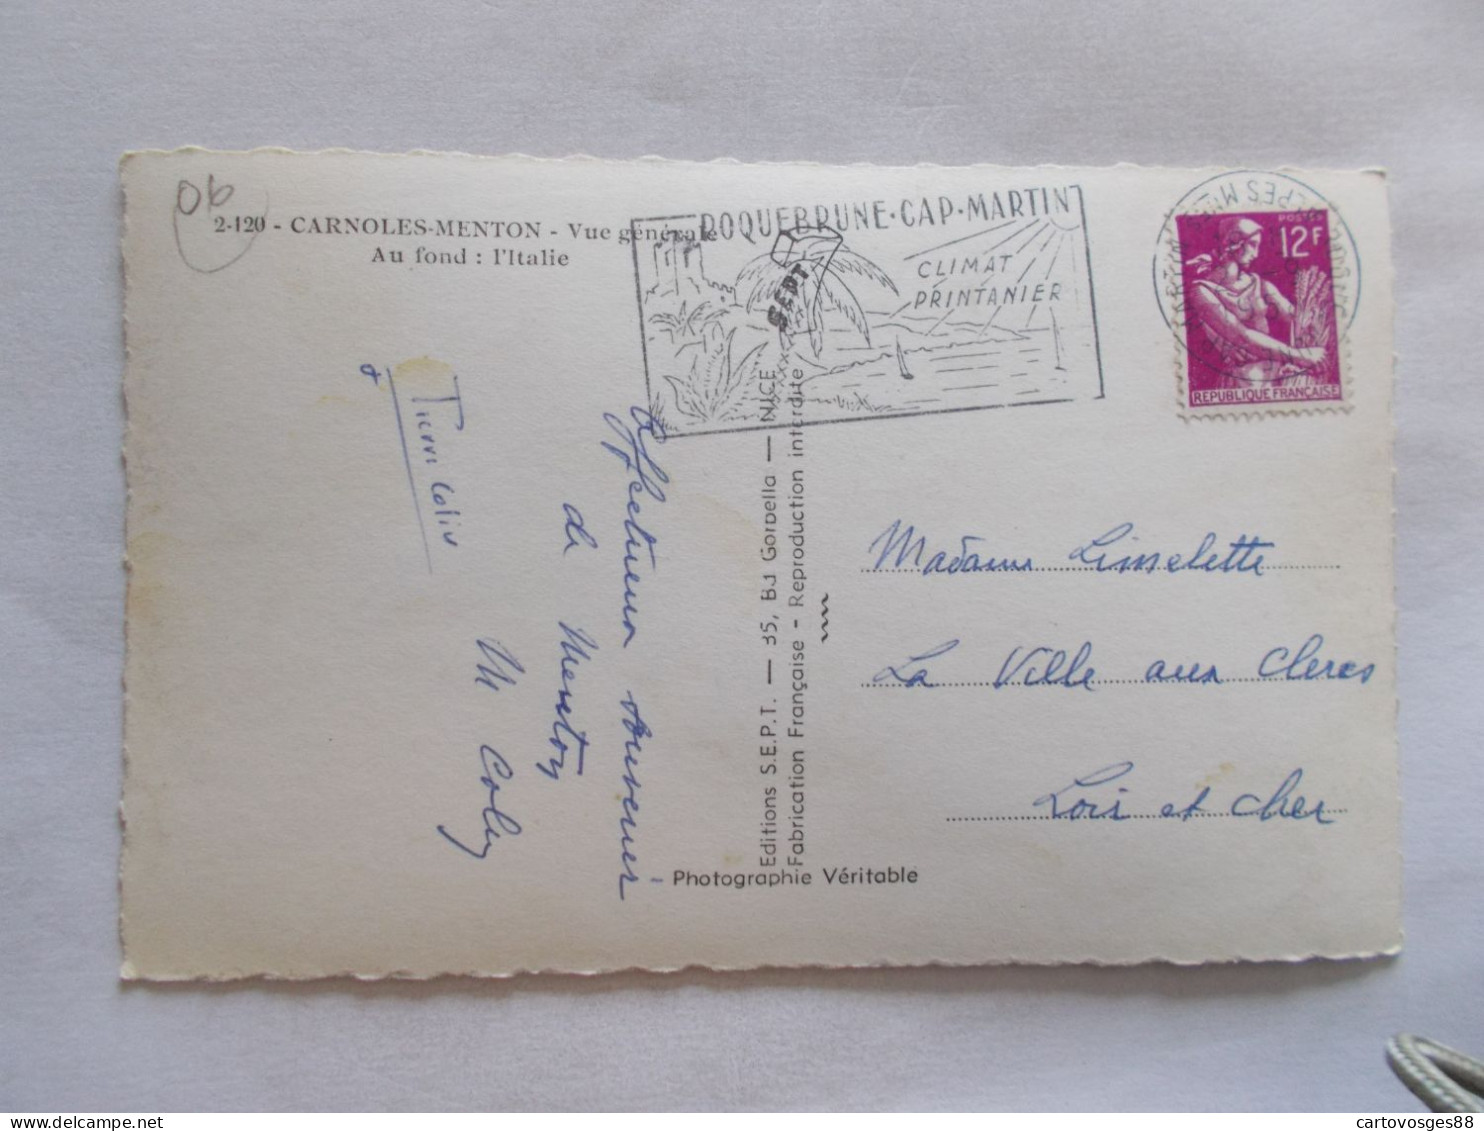 06
2-120 - CARNOLES-MENTON - Vue générale
Au fond : l'Italie
ROQUEBRUNE·CAP·MARTIN
CLIMAT
PRINTANIER
SEPT
POSTES
12F
REPUBLIQUE FRANÇAISE
Affectueux souvenir
de Menton
M Coly
Editions S.E.P.T. — 35, Bd Gorbella — NICE
Fabrication Française - Reproduction interdite
Madame Limelette
La Ville aux Clercs
Loir et cher
- Photographie Véritable
cartovosges88